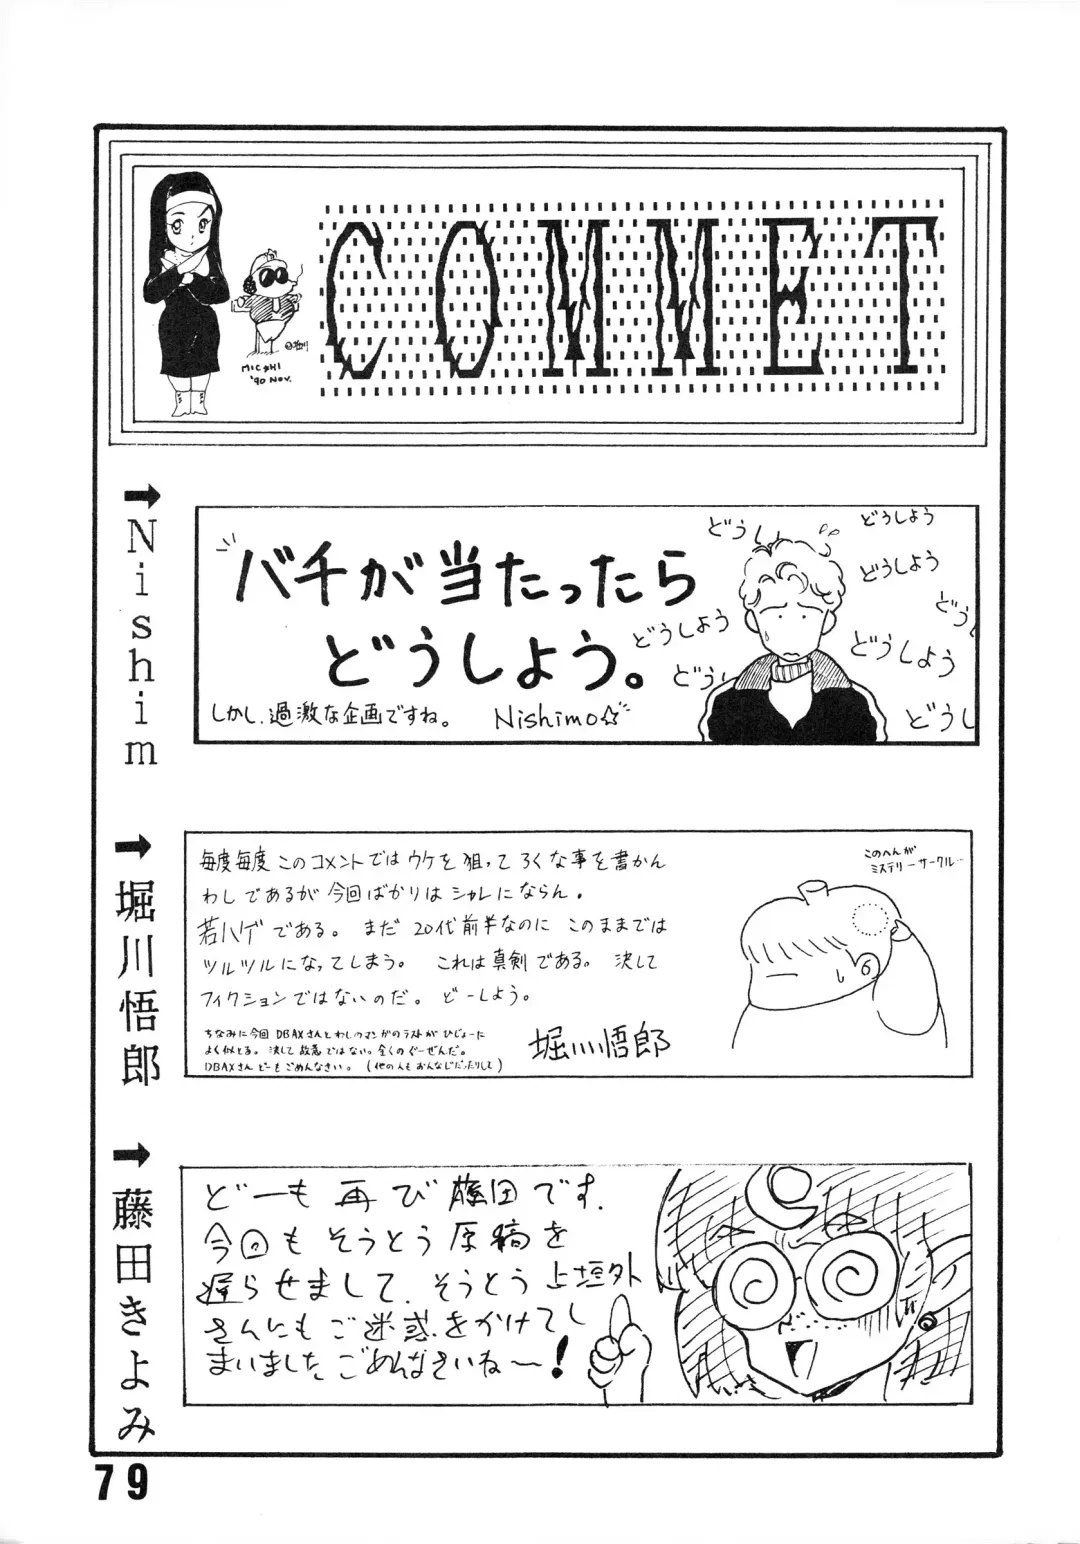 COMMET
©堀川
MICSHI
'90 NOV.
➡Nishim
バチが当たったら
どうしよう。
しかし、過激な企画ですね。 Nishimo☆
どうし
どうしよう
どうしよう
どうし
どうしよう
どうしよう
どうし
どうし
➡堀川悟郎
毎度毎度このコメントではウケを狙ってろくな事を書かん
わしであるが今回ばかりはシャレにならん。
若ハゲである。 まだ20代前半なのに このままでは
ツルツルになってしまう。 これは真剣である。 決して
フィクションではないのだ。 どーしよう。
ちなみに今回 DBAXさんとわしのマンガのラストが ひじょーに
よく似とる。 決して故意ではない。全くのぐーぜんだ。
DBAXさん どーもごめんなさい。 (他の人もおんなじだったりして)
堀川悟郎
このへんが
ミステリーサークル…
➡藤田きよみ
どーも再び藤田です.
今回もそうとう原稿を
遅らせまして、そうとう上垣外
さんにもご迷惑をかけてし
まいました、ごめんなさいね〜!
79